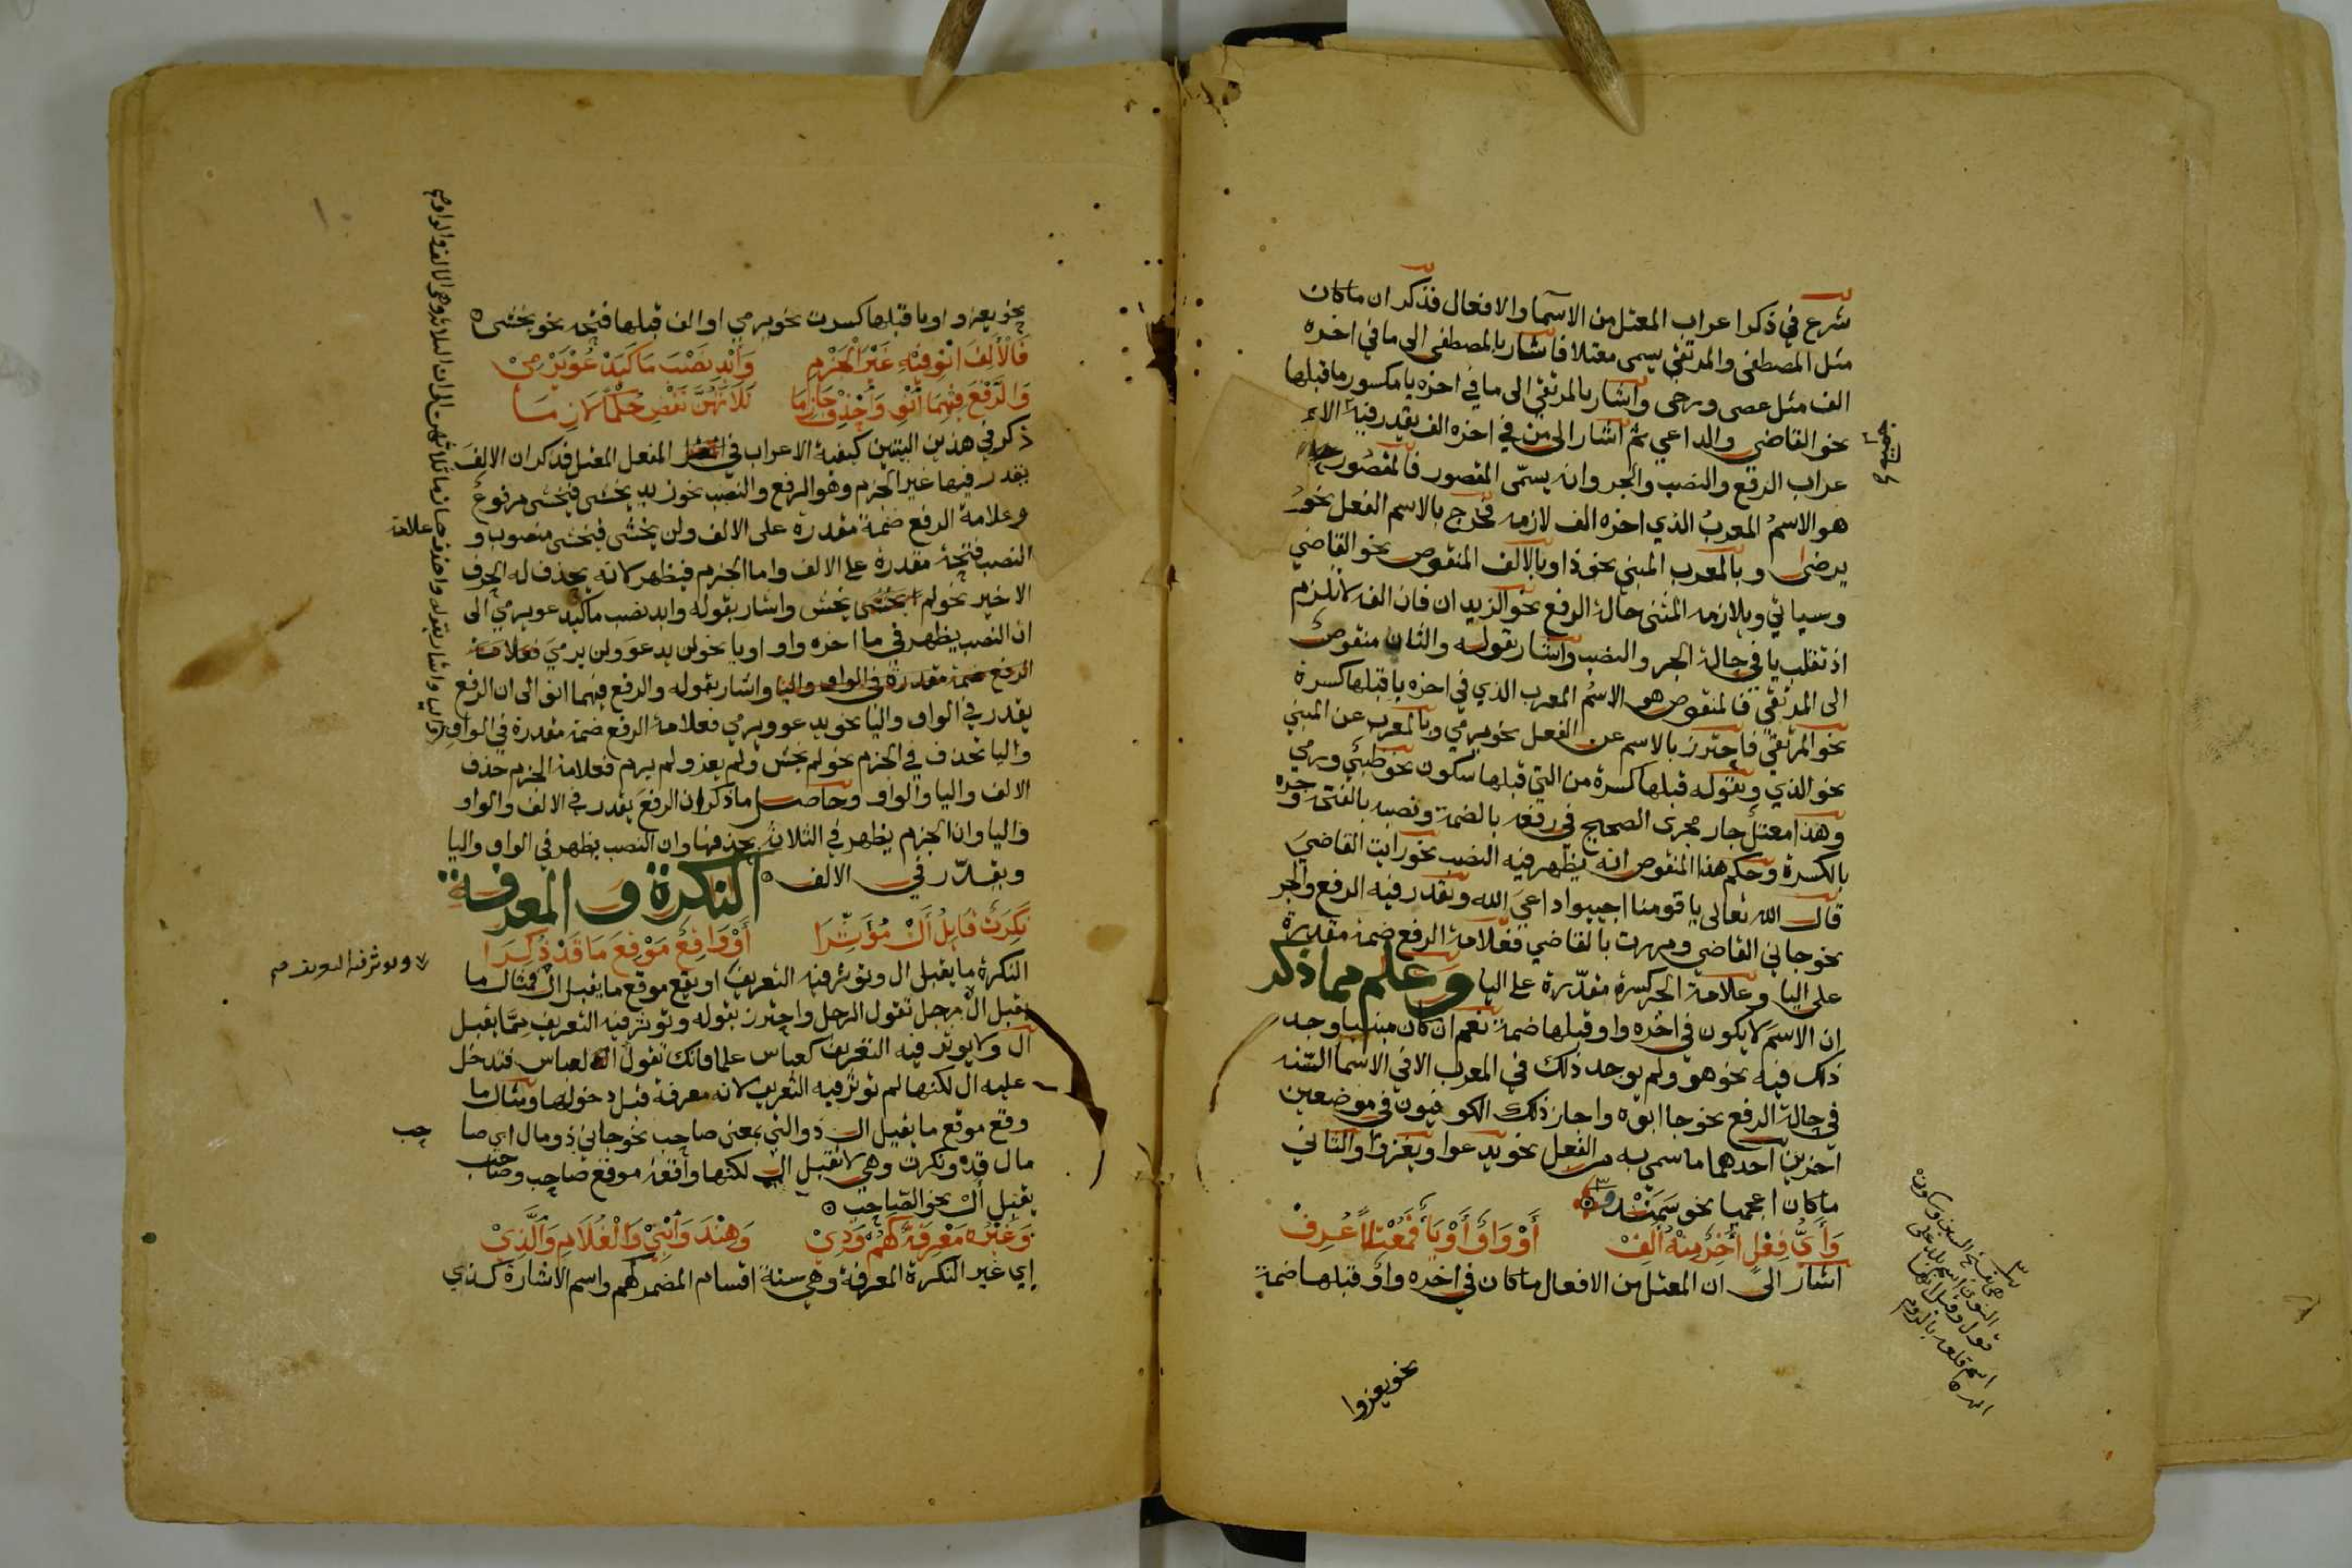 شرع في ذكر اعراب المعتل من الاسما والافعال فذكر ان ماكان
مثل المصطفى والمرتقي يسمى معتلا فاشار بالمصطفى الى ما في اخره
الف مثل عصى ورحى واشار بالمرتقي الى ما في اخره يا مكسور ما قبلها
نحو القاضي والداعي ثم اشار الى من في اخره الف يقدر فيه الا
عراب الرفع والنصب والجر وانه يسمى المقصور فالمقصور
هو الاسم المعرب الذي اخره الف لازمه فخرج بالاسم الفعل نحو
يرضى وبالمعرب المبني نحو ذا وبالالف المنقوص نحو القاضي
وسياتي وبلازمه المثنى حالة الرفع نحو الزيدان فان الفه لا تلزم
اذ تقلب يا في حالة الجر والنصب واشار بقوله والثان منقوص
الى المرتقي فالمنقوص هو الاسم المعرب الذي في اخره يا قبلها كسرة
نحو المرتقي فاحترز بالاسم عن الفعل نحو يرمي وبالمعرب عن المبني
نحو الذي وبقوله قبلها كسرة من التي قبلها سكون نحو ظبي ورمي
وهذا معتل جار مجرى الصحيح في رفعه بالضمة ونصبه بالفتحة وجره
بالكسرة وحكم هذا المنقوص انه يظهر فيه النصب نحو رايت القاضي
قال الله تعالى يا قومنا اجيبوا داعي الله ويقدر فيه الرفع والجر
نحو جاني القاضي ومررت بالقاضي فعلامة الرفع ضمة مقدرة
على اليا وعلامة الجر كسرة مقدرة على اليا وعلم مما ذكر
ان الاسم لا يكون في اخره واو قبلها ضمة نعم ان كان مبنيا وجد
ذلك فيه نحو هو ولم يوجد ذلك في المعرب الا في الاسما الستة
في حالة الرفع نحو جا ابوه واجاز ذلك الكوفيون في موضعين
اخرين احدهما ما سمي به من الفعل نحو يدعوا ويغزوا والثاني
ماكان اعجميا نحو سمندو
وَأَيُّ فِعْلٍ أَخِرٌ مِنْهُ أَلِفْ أَوْ وَاوٌ أَوْ يَاءٌ فَمُعْتَلًّا عُرِفْ
اشار الى ان المعتل من الافعال ماكان في اخره واو قبلها ضمة
نحو يغزوا
نحو يغزو او يا قبلها كسرت نحو يرمي او الف قبلها فتحه نحو يخشى
فَالأَلِفَ انْوِ فِيْهِ غَيْرَ الْجَزْمِ وَأَبْدِ نَصْبَ مَا كَيَدْعُو يَرْمِيْ
وَالرَّفْعَ فِيْهِمَا انْوِ وَاحْذِفْ جَازِمَا ثَلَاثَهُنَّ تَقْضِ حُكْمًا لَازِمَا
ذكر في هذين البيتين كيفية الاعراب في الفعل المعتل فذكر ان الالف
يقدر فيها غير الجزم وهو الرفع والنصب نحو زيد يخشى فيخشى مرفوع
وعلامة الرفع ضمة مقدرة على الالف ولن يخشى فيخشى منصوب و علامة
النصب فتحة مقدرة على الالف واما الجزم فيظهر لانه يحذف له الحرف
الاخير نحو لم يخش واشار بقوله وابد نصب ما كيدعو يرمي الى
ان النصب يظهر في ما اخره واو او يا نحو لن يدعو ولن يرمي فعلامة
الرفع ضمة مقدرة في الواو واليا واشار بقوله والرفع فيهما انو الى ان الرفع
يقدر في الواو واليا نحو يدعو ويرمي فعلامة الرفع ضمة مقدرة في الواو واليا
واشار بقوله واحذف جازما ثلاثهن الى ان الثلاث وهي الالف والواو
واليا تحذف في الجزم نحو لم يخش ولم يغز ولم يرم فعلامة الجزم حذف
الالف واليا والواو وحاصل ماذكر ان الرفع يقدر في الالف والواو
واليا وان الجزم يظهر في الثلاث بحذفها وان النصب يظهر في الواو واليا
ويقدر في الالف النكرة والمعرفة
نَكِرَةٌ قَابِلُ أَلْ مُؤَثِّرَا أَوْ وَاقِعٌ مَوْقِعَ مَا قَدْ ذُكِرَا
النكرة ما يقبل ال ويوثر فيه التعريف او يقع موقع ما يقبل ال فمثال ما
ويوثر فيه التعريف
يقبل ال رجل تقول الرجل واحترز بقوله ويوثر فيه التعريف مما يقبل
ال ولا يوثر فيه التعريف كعباس علما فانك تقول العباس فتدخل
عليه ال لكنها لم توثر فيه التعريف لانه معرفة قبل دخولها ومثال ما
وقع موقع ما يقبل ال ذو التي بمعنى صاحب نحو جاني ذو مال اي صا حب
مال فذو نكرت وهي لا تقبل ال لكنها واقعة موقع صاحب وصاحب
يقبل أل نحو الصاحب
وَغَيْرُهُ مَعْرِفَةٌ كَهُمْ وَذِيْ وَهِنْدَ وَابْنِيْ وَالْغُلَامِ وَالَّذِيْ
اي غير النكرة المعرفة وهي ستة اقسام المضمر كهم واسم الاشارة كذي